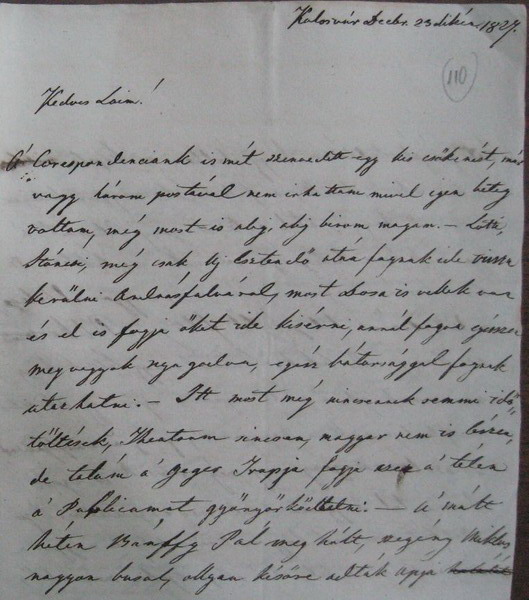 Kolosvár Decbr. 23dikán 1827.
110
Kedves Laim!
A' Corespondenciank is mét szenvedett egy kis csökenést, már
vagy három postával nem irhattam mivel igen beteg
voltam, még most is alig, alig birom magam. – Lotti,
Stánsi, még csak Uj Esztendő utra fognak ide vissza
kerülni Andrásfalvárol, most Dosa is vellek van
és el is fogja őket ide kisérni, annál fogva egészen
meg vagyok nyugodva, egész bátorsággal fognak
utazhatni. – Itt most még nincsenek semmi idő
töltések, Theatrum sincsen, magyar nem is lészen,
de talám a' Geger Trupja fogja a' télen
a' Publicumat gyönyörködtetni. – A' múlt
héten Bánffy Pál meg hólt, szegény Miklos
nagyon busul, ollyan késöre adták apja